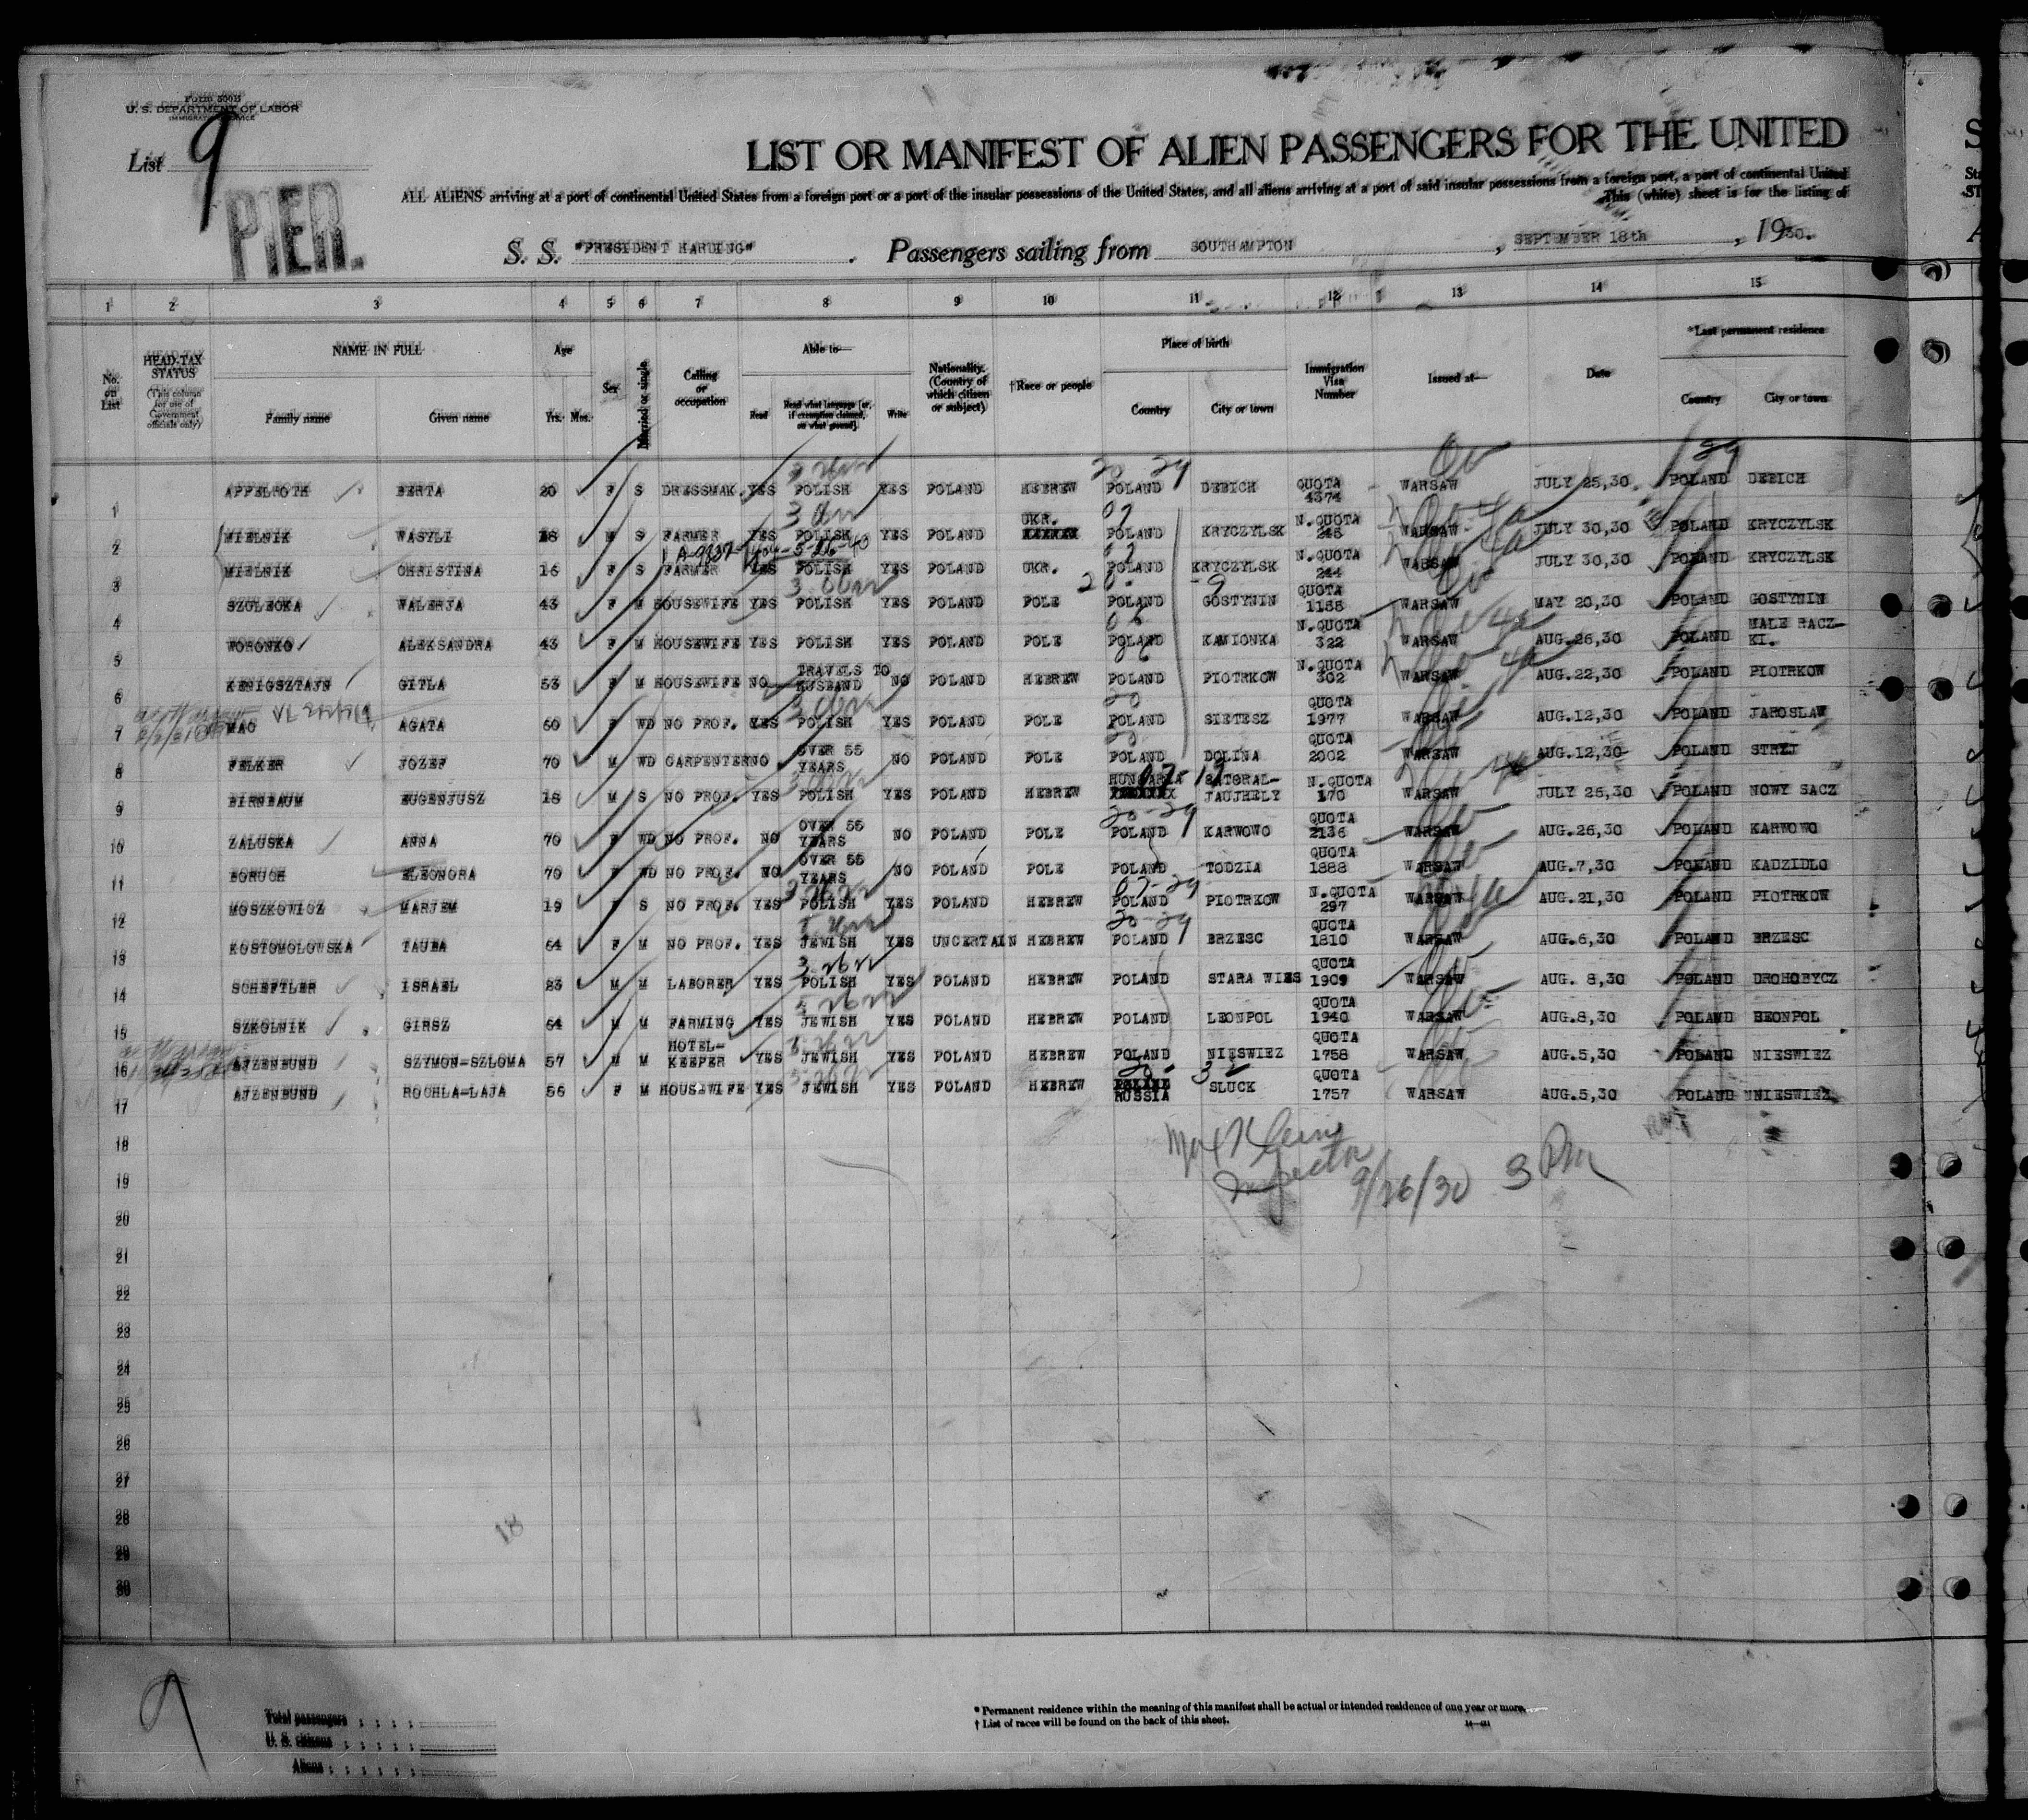 Form 500B
U. S. DEPARTMENT OF LABOR
IMMIGRATION SERVICE
List 9
PIER.
LIST OR MANIFEST OF ALIEN PASSENGERS FOR THE UNITED
ALL ALIENS arriving at a port of continental United States from a foreign port or a port of the insular possessions of the United States, and all aliens arriving at a port of said insular possessions from a foreign port, a port of continental United
This (white) sheet is for the listing of
S. S. "PRESIDENT HARDING". Passengers sailing from SOUTHAMPTON, SEPTEMBER 18th, 1930.
1 2 3 4 5 6 7 8 9 10 11 12 13 14 15
No. on List
HEAD-TAX STATUS (This column for use of Government officials only)
NAME IN FULL
Family name Given name
Age
Yrs. Mos.
Sex
Married or single
Calling or occupation
Able to—
Read Read what language [or, if exemption claimed, on what ground] Write
Nationality. (Country of which citizen or subject)
†Race or people
Place of birth
Country City or town
Immigration Visa Number
Issued at—
Date
*Last permanent residence
Country City or town
1 APPELROTH BERTA 20 F S DRESSMAK. YES POLISH YES POLAND HEBREW POLAND DEBICH QUOTA 4374 WARSAW JULY 25,30 POLAND DEBICH
2 MIELNIK WASYLI 18 M S FARMER YES POLISH YES POLAND UKR. POLAND KRYCZYLSK N.QUOTA 245 WARSAW JULY 30,30 POLAND KRYCZYLSK
3 MIELNIK CHRISTINA 16 F S FARMER YES POLISH YES POLAND UKR. POLAND KRYCZYLSK N.QUOTA 244 WARSAW JULY 30,30 POLAND KRYCZYLSK
4 SZOLECKA WALERJA 43 F M HOUSEWIFE YES POLISH YES POLAND POLE POLAND GOSTYNIN QUOTA 1188 WARSAW MAY 20,30 POLAND GOSTYNIN
5 WORONKO ALEKSANDRA 43 F M HOUSEWIFE YES POLISH YES POLAND POLE POLAND KAMIONKA N.QUOTA 322 WARSAW AUG.26,30 POLAND MALE RACZ-KI.
6 KENIGSZTAJN GITLA 53 F M HOUSEWIFE NO TRAVELS TO HUSBAND NO POLAND HEBREW POLAND PIOTRKOW N.QUOTA 302 WARSAW AUG.22,30 POLAND PIOTRKOW
7 MAC AGATA 60 F WD NO PROF. YES POLISH YES POLAND POLE POLAND SIETESZ QUOTA 1977 WARSAW AUG.12,30 POLAND JAROSLAW
8 FELKER JOZEF 70 M WD CARPENTER NO OVER 55 YEARS NO POLAND POLE POLAND DOLINA QUOTA 2002 WARSAW AUG.12,30 POLAND STRYJ
9 BIRNBAUM EUGENJUSZ 18 M S NO PROF. YES POLISH YES POLAND HEBREW HUNGARIA SATORAL-JAUJHELY N.QUOTA 170 WARSAW JULY 25,30 POLAND NOWY SACZ
10 ZALUSKA ANNA 70 F WD NO PROF. NO OVER 55 YEARS NO POLAND POLE POLAND KARWOWO QUOTA 2136 WARSAW AUG.26,30 POLAND KARWOWO
11 BORUCH ELEONORA 70 F WD NO PROF. NO OVER 55 YEARS NO POLAND POLE POLAND TODZIA QUOTA 1888 WARSAW AUG.7,30 POLAND KADZIDLO
12 MOSZKOWICZ MARJEM 19 F S NO PROF. YES POLISH YES POLAND HEBREW POLAND PIOTRKOW N.QUOTA 297 WARSAW AUG.21,30 POLAND PIOTRKOW
13 KOSTOMOLOWSKA TAUBA 64 F M NO PROF. YES JEWISH YES UNCERTAIN HEBREW POLAND BRZESC QUOTA 1810 WARSAW AUG.6,30 POLAND BRZESC
14 SCHEFTLER ISRAEL 23 M M LABORER YES POLISH YES POLAND HEBREW POLAND STARA WIES QUOTA 1909 WARSAW AUG. 8,30 POLAND DROHOBYCZ
15 SZKOLNIK GIRSZ 64 M M FARMING YES JEWISH YES POLAND HEBREW POLAND LEONPOL QUOTA 1940 WARSAW AUG.8,30 POLAND BEONPOL
16 AJZENBUND SZYMON-SZLOMA 57 M M HOTEL-KEEPER YES JEWISH YES POLAND HEBREW POLAND NIESWIEZ QUOTA 1758 WARSAW AUG.5,30 POLAND NIESWIEZ
17 AJZENBUND ROCHLA-LAJA 56 F M HOUSEWIFE YES JEWISH YES POLAND HEBREW RUSSIA SLUCK QUOTA 1757 WARSAW AUG.5,30 POLAND NNIESWIEZ
18
Inspector
19
9/26/30 3 PM
20
21
22
23
24
25
26
27
28
18
29
30
9
Total passengers
U. S. citizens
Aliens
* Permanent residence within the meaning of this manifest shall be actual or intended residence of one year or more.
† List of races will be found on the back of this sheet.